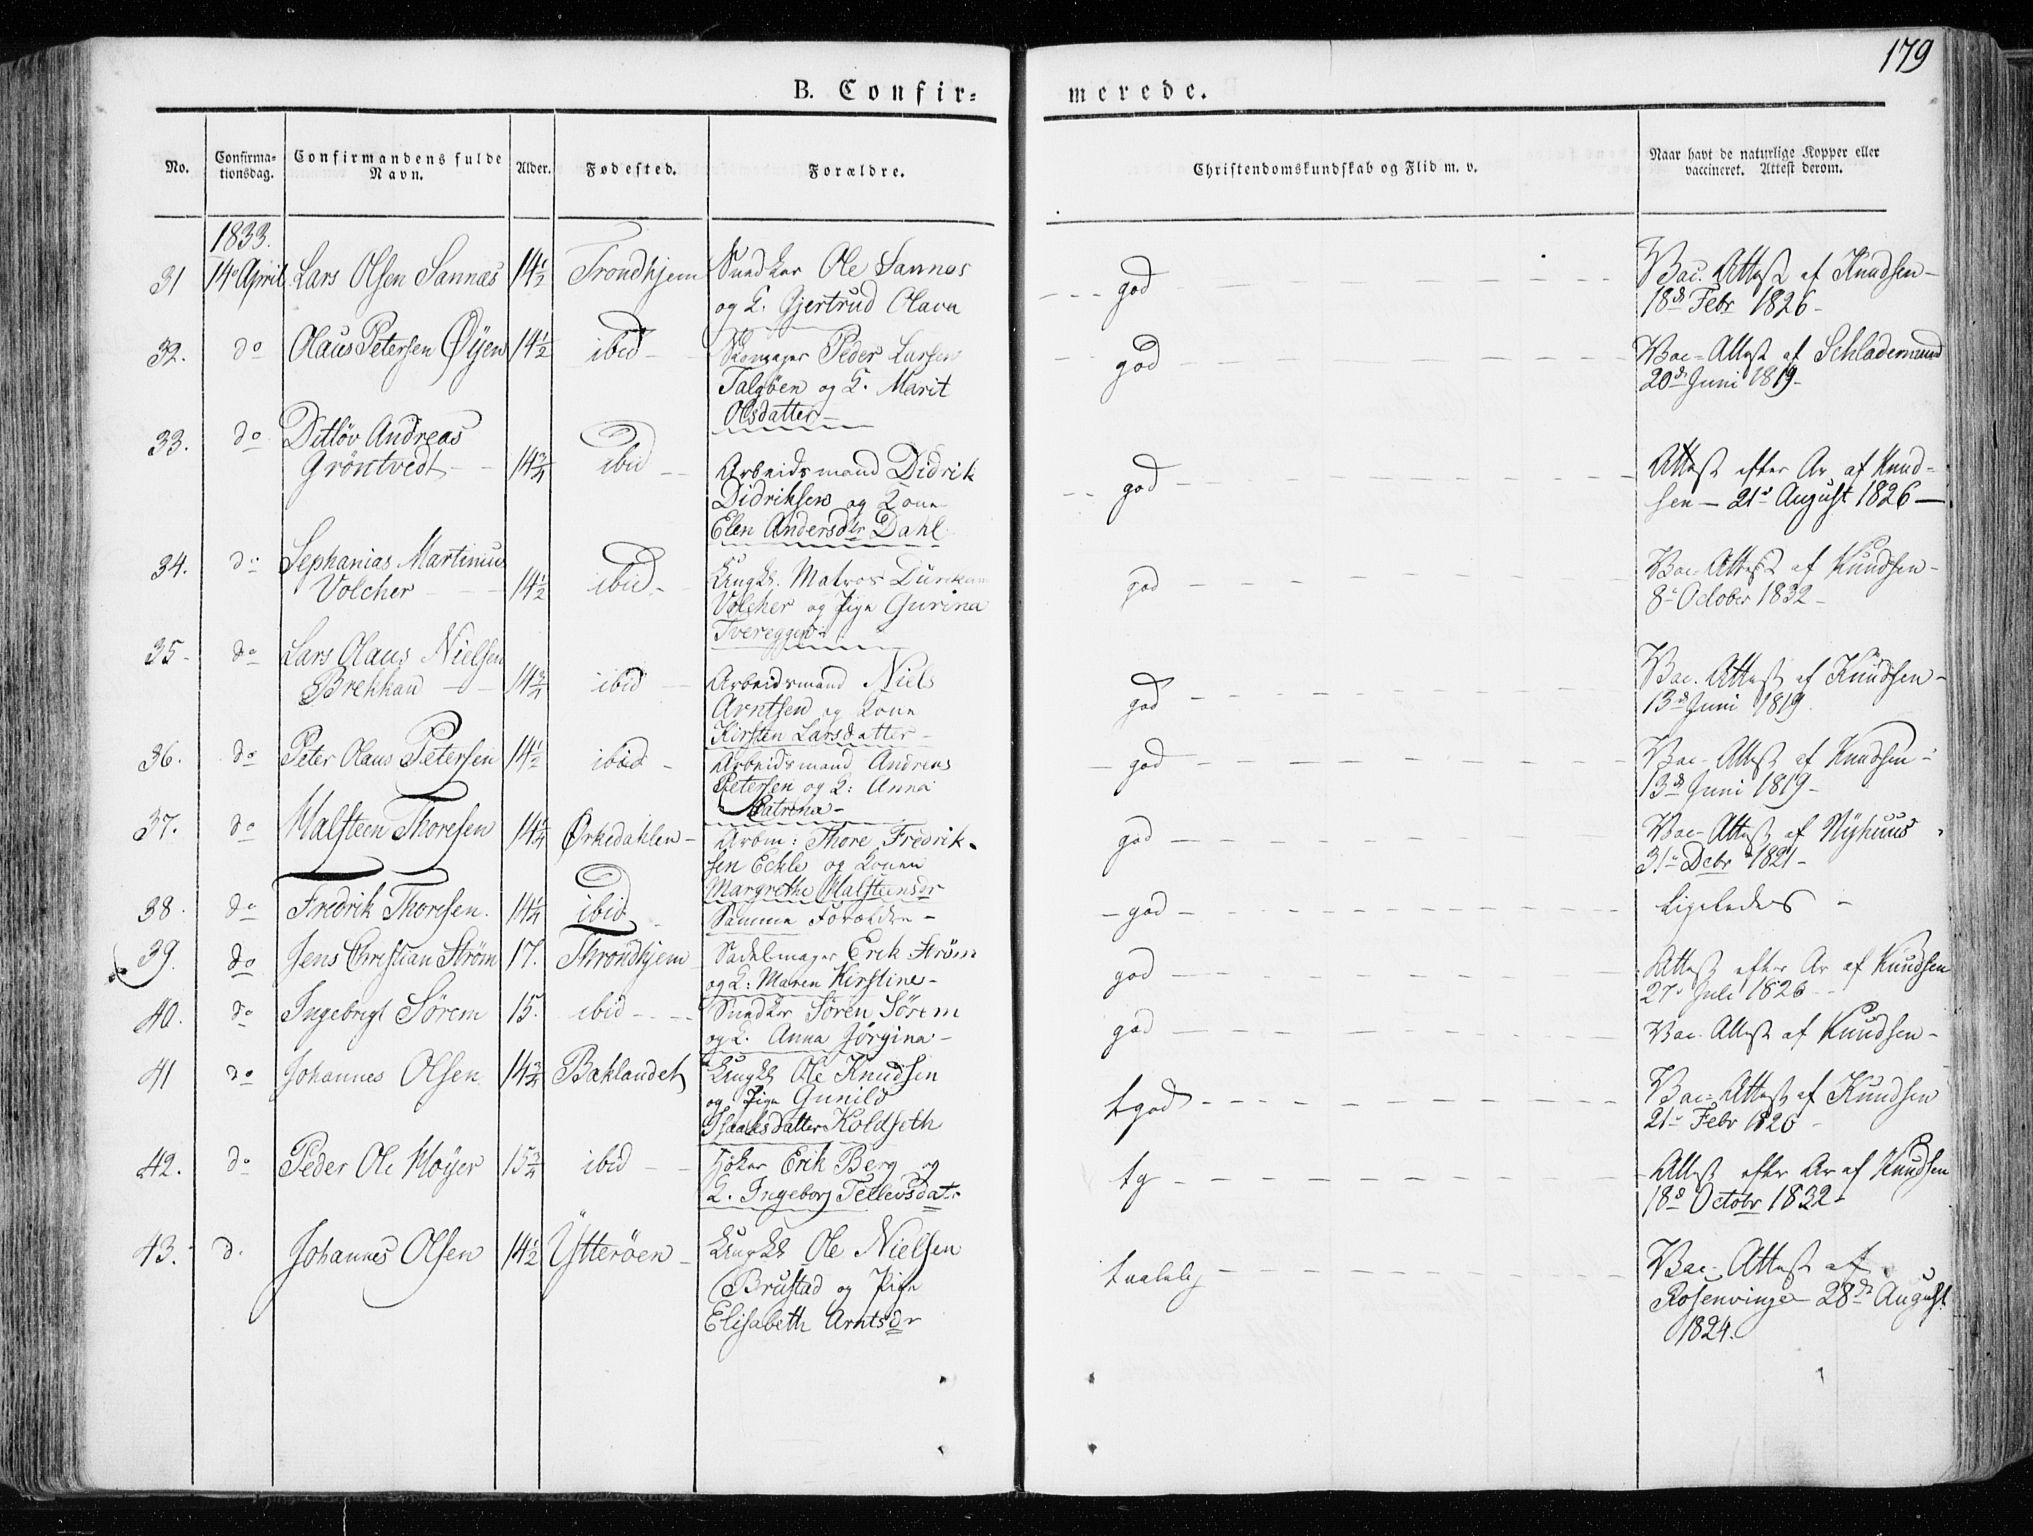 179
B. Confir- merede.
No. Confirma- tionsdag. Confirmandens fulde Navn. Alder. Fødested. Forældre. Christendomskundskab og Flid m. v. Naar havt de naturlige Kopper eller vaccineret. Attest derom.
1833.
31 14de April Lars Olsen Sannæs 14 1/2 Trondhjem Ole Sannes god Vac. Attest af Knudsen
og K. Gjertrud Olava 18de Febr 1826
32. do Olaus Petersen Øyen 14 1/2 ibid Skomager Peder Larsen god Vac-Attest af Schlademund
Talgöen og K. Marit 20de Juni 1819
Olsdatter
33. do Ditløv Andreas
Gröntvedt 14 3/4 ibid Arbeidsmand Didrik god Attest efter Ar af Knud-
Didriksen og Kone sen 21de August 1826
Elen Andersdtr Dahl
34. do Sephanias Martinus
Volcher 14 1/2 ibid Ungkl. Matros god Vac-Attest af Knudsen
Volcher og Pige Gurina 8de October 1832
Tvereggen
35 do Lars Olaus Nielsen
Brekkan 14 3/4 ibid Arbeidsmand Niels god Vac. Attest af Knudsen
Arntsen og Kone 13de Juni 1819
Kirsten Larsdatter
36. do Peter Olaus Petersen 14 1/2 ibid Arbeidsmand Andreas god Vac-Attest af Knudsen
Petersen og K: Anna 13de Juni 1819
Catrina
37. do Halsteen Thoresen 14 1/4 Ørkedahlen Arbm: Thore Fredrik- god Vac-Attest af Nyhuus
sen Eckle og Konen 31de Decbr 1821
Margrethe Halsteensdr
38. do Fredrik Thoresen. 14 1/4 ibid Samme Forældre god Ligeledes
39. do Jens Christian Strøm 17. Throndhjem Sadelmager Erik Strøm god Attest efter Ar af Knudsen
og K: Maren Kirstine 27de Juli 1826
40. do Ingebrigt Sörem 15. ibid Sören Sörem god Vac. Attest af Knudsen
og K. Anna Jörgina
41 do Johannes Olsen 14 3/4 Baklandet Ungkl Ole Knudsen tgod Vac-Attest af Knudsen
og Pige Gunild 21de Febr 1826
Isaaksdatter Koldseth
42. do Peder Ole Höyer 15 3/4 ibid Höker Erik Berg og tg Attest efter Ar af Knudsen
K. Ingeborg Tellevsdatr 18de Octobr 1832
43. do Johannes Olsen 14 1/2 Ytteröen Ungkl Ole Nielsen taalelig Vac-Attest af
Brustad og Pige Rosenvinge 28de August
Elisabeth Arntsdr 1824.